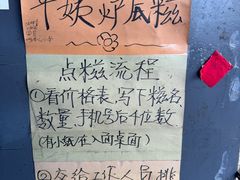 平姨炉底糍
点糍流程
①看价格表,写下糍名
数量,手机号后4位数
(有小纸在入面桌面)
②交给工作人员排